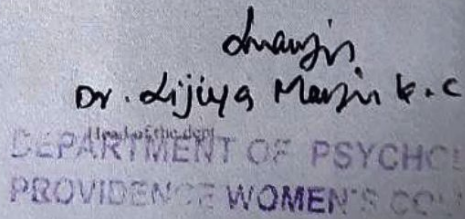 Dr. Lijiya k.c
Head of the dept
DEPARTMENT OF PSYCHO
PROVIDENCE WOMEN'S CO